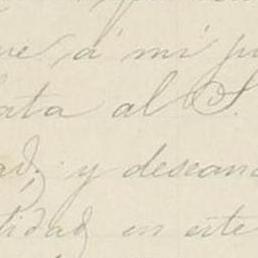 ue á mi p
ata al S.
ad, y desean
tidad en este